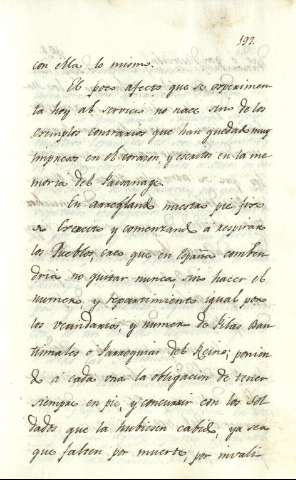 197.
con ella lo mismo.
El poco afecto que se experimen
ta hoy al servicio no nace sino de los
exemplos contrarios que han quedado muy
impresos en el corazon, y escritos en la me
moria del Paisanage.
En arreglando nuestro pie fixo
de Exercito y comenzando á respirar
los Pueblos, creo que en España convien
dria no quitar nunca, sino hacer el
numero y repartimiento igual por
los vecindarios, y numero de Pilas Bau
tismales ó Parroquias del Reino; ponien
do á cada una la obligacion de tener
siempre en pie, y concurrir con los Sol
dados que la hubiesen cabido, ya sea
que falten por muerte, por invali